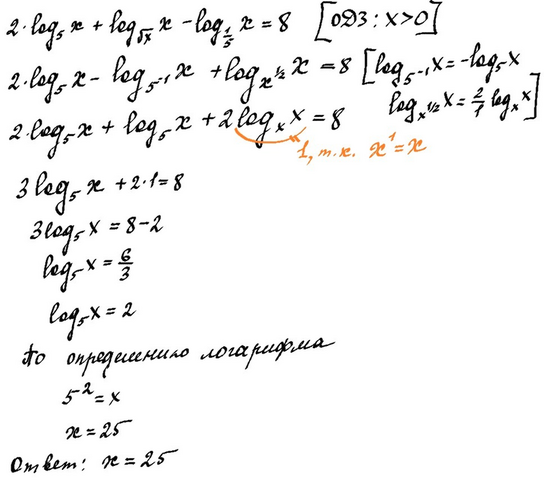 2·log₅x + log_√x x − log_{1/5} x = 8 [ОДЗ: x>0]
2·log₅x − log_{5⁻¹} x + log_{x^{1/2}} x = 8 [log_{5⁻¹} x = −log₅x
log_{x^{1/2}} x = 2/1 log_x x]
2·log₅x + log₅x + 2log_x x = 8
1, т.к. x¹ = x
3log₅x + 2·1 = 8
3log₅x = 8−2
log₅x = 6/3
log₅x = 2
По определению логарифма
5² = x
x = 25
Ответ: x = 25